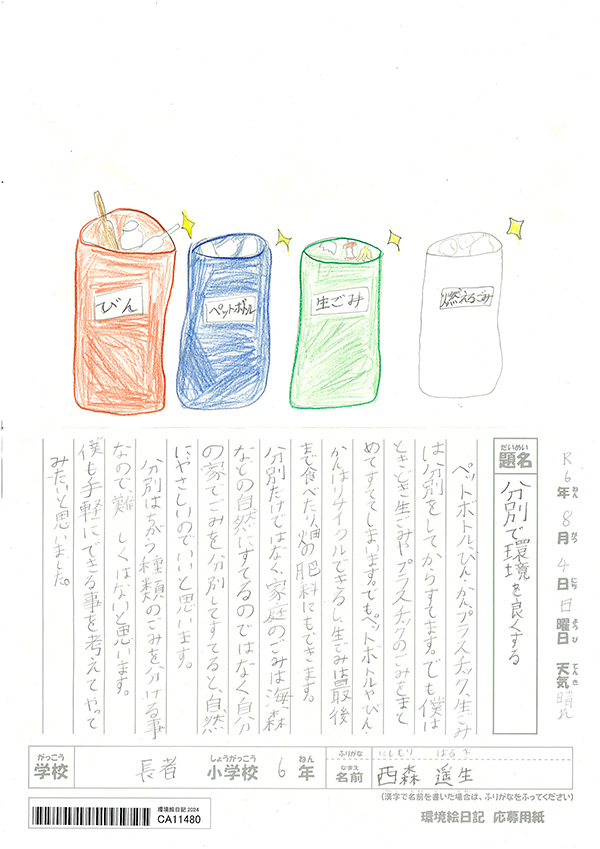 びん
ペットボトル
生ごみ
燃えるごみ
R6年8月4日日曜日 天気晴れ
ねん がつ にち ようび てんき
だいめい
題名
分別で環境を良くする
ペットボトル、びん・かん、プラスチック、生ごみ
は分別をしてからすてます。でも僕は
ときどき生ごみやプラスチックのごみをまと
めてすててしまいます。でもペットボトルやびん・
かんはリサイクルできるし、生ごみは最後
まで食べたり、畑の肥料にもできます。
分別だけではなく、家庭のごみは海、森
などの自然にすてるのではなく、自分
の家でごみを分別してすてると、自然
にやさしいのでいいと思います。
分別はちがう種類のごみを、分ける事
なので難しくはないと思います。
僕も手軽にできる事を考えてやって
みたいと思いました。
がっこう
学校
長者
しょうがっこう
小学校
6
ねん
年
ふりがな
にしもり はるき
なまえ
名前
西森 遥生
(漢字で名前を書いた場合は、ふりがなをふってください)
環境絵日記2024
CA11480
環境絵日記 応募用紙